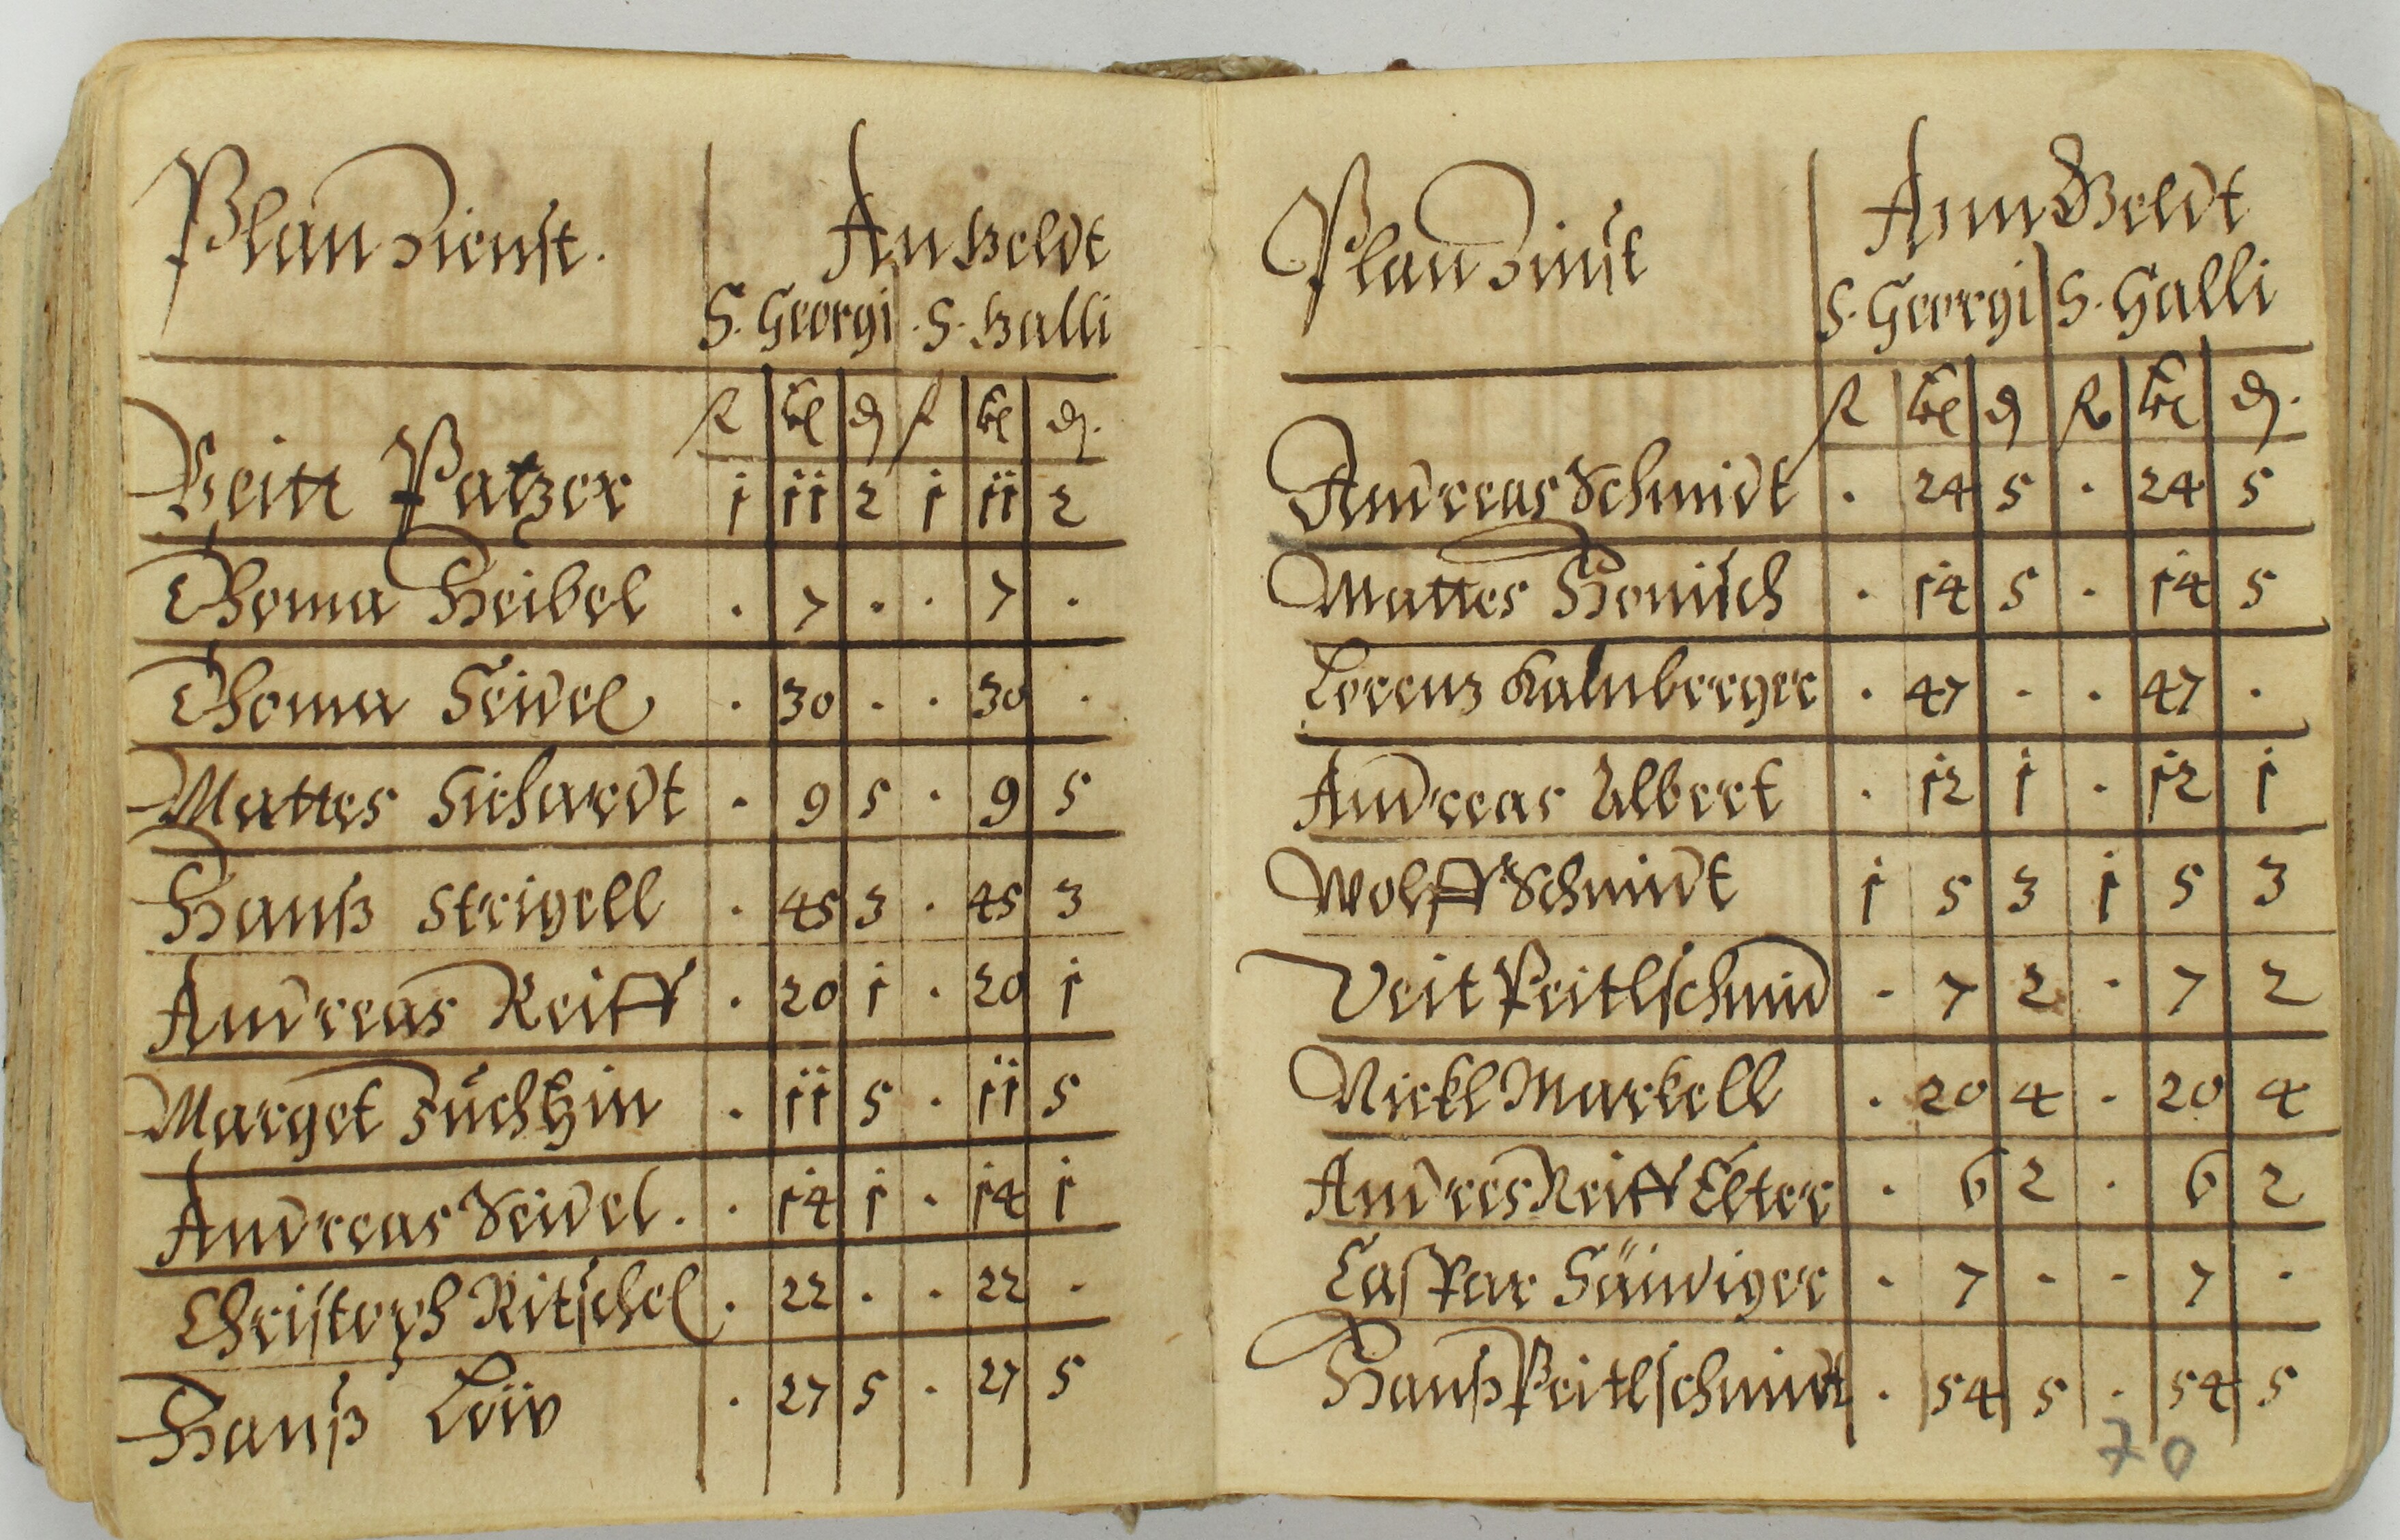 Plan Dienst.
An Geldt
S. Georgi . S. Galli
fl kr d fl kr d.
Veitt Patzer i ii 2 i ii 2
Thoma Heibel . 7 . . 7 .
Thoma Seidel . 30 . . 30 .
Mattes Sichardt . 9 5 . 9 5
Hanß Strigell . 45 3 . 45 3
Andreas Reiff . 20 i . 20 i
Marget Füchßin . ii 5 . ii 5
Andreas Seidel . . i4 i . i4 i
Christoph Ritschel . 22 . . 22 .
Hanß Löw . 27 5 . 27 5
Plan Dinst
Ann Geldt
S. Georgi S. Galli
fl kr d fl kr d.
Andreas Schmidt . 24 5 . 24 5
Mattes Honisch . i4 5 . i4 5
Lorenz Kalmberger . 47 . . 47 .
Andreas Albert . i2 i . i2 i
Wolff Schmidt i 5 3 i 5 3
Veit Peitlschmid . 7 2 . 7 2
Nickl Markell . 20 4 . 20 4
Andres Reiff Elter . 6 2 . 6 2
Caspar Säüdiger . 7 . . 7 .
Hanß Peitlschmidt . 54 5 . 54 5
70